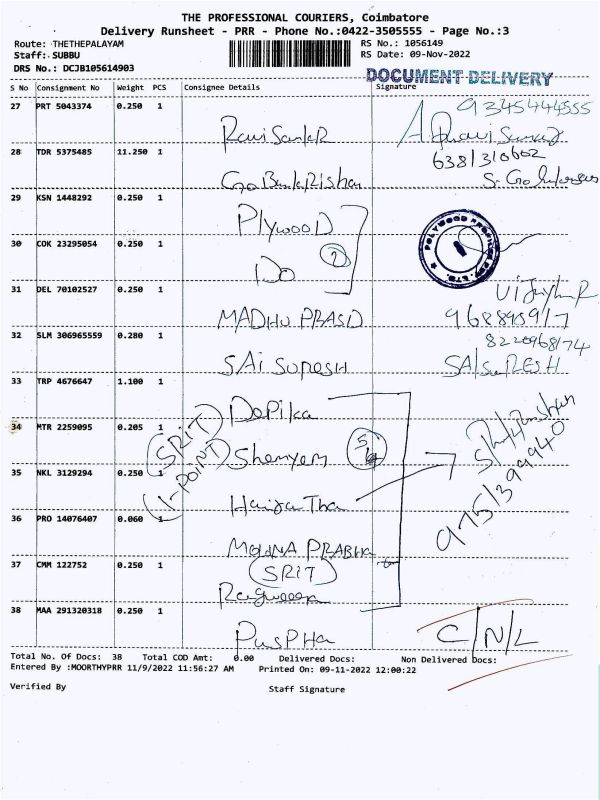 THE PROFESSIONAL COURIERS, Coimbatore
Delivery Runsheet - PRR - Phone No.:0422-3505555 - Page No.:3
Route: THETHEPALAYAM RS No.: 1056149
Staff: SUBBU RS Date: 09-Nov-2022
DRS No.: DCJB105614903
DOCUMENT DELIVERY
S No Consignment No Weight PCS Consignee Details Signature
9345444555
27 PRT 5043374 0.250 1
Ravi Sankar
6381310602
28 TDR 5375485 11.250 1
29 KSN 1448292 0.250 1
Plywood
30 COK 23295054 0.250 1
Do 2
31 DEL 70102527 0.250 1
MADHU PRASD
32 SLM 306965559 0.280 1
8220968174
SAi SuRESH SAI SuRESH
33 TRP 4676647 1.100 1
Depika
34 MTR 2259095 0.205 1
(SRIT)
(1-POINT)
35 NKL 3129294 0.250 1
36 PRO 14076407 0.060 1
MOUNA PRABHA
37 CMM 122752 0.250 1
(SRIT)
38 MAA 291320318 0.250 1
PusPHa
C/N/L
Total No. Of Docs: 38 Total COD Amt: 0.00 Delivered Docs: Non Delivered Docs:
Entered By :MOORTHYPRR 11/9/2022 11:56:27 AM Printed On: 09-11-2022 12:00:22
Verified By Staff Signature